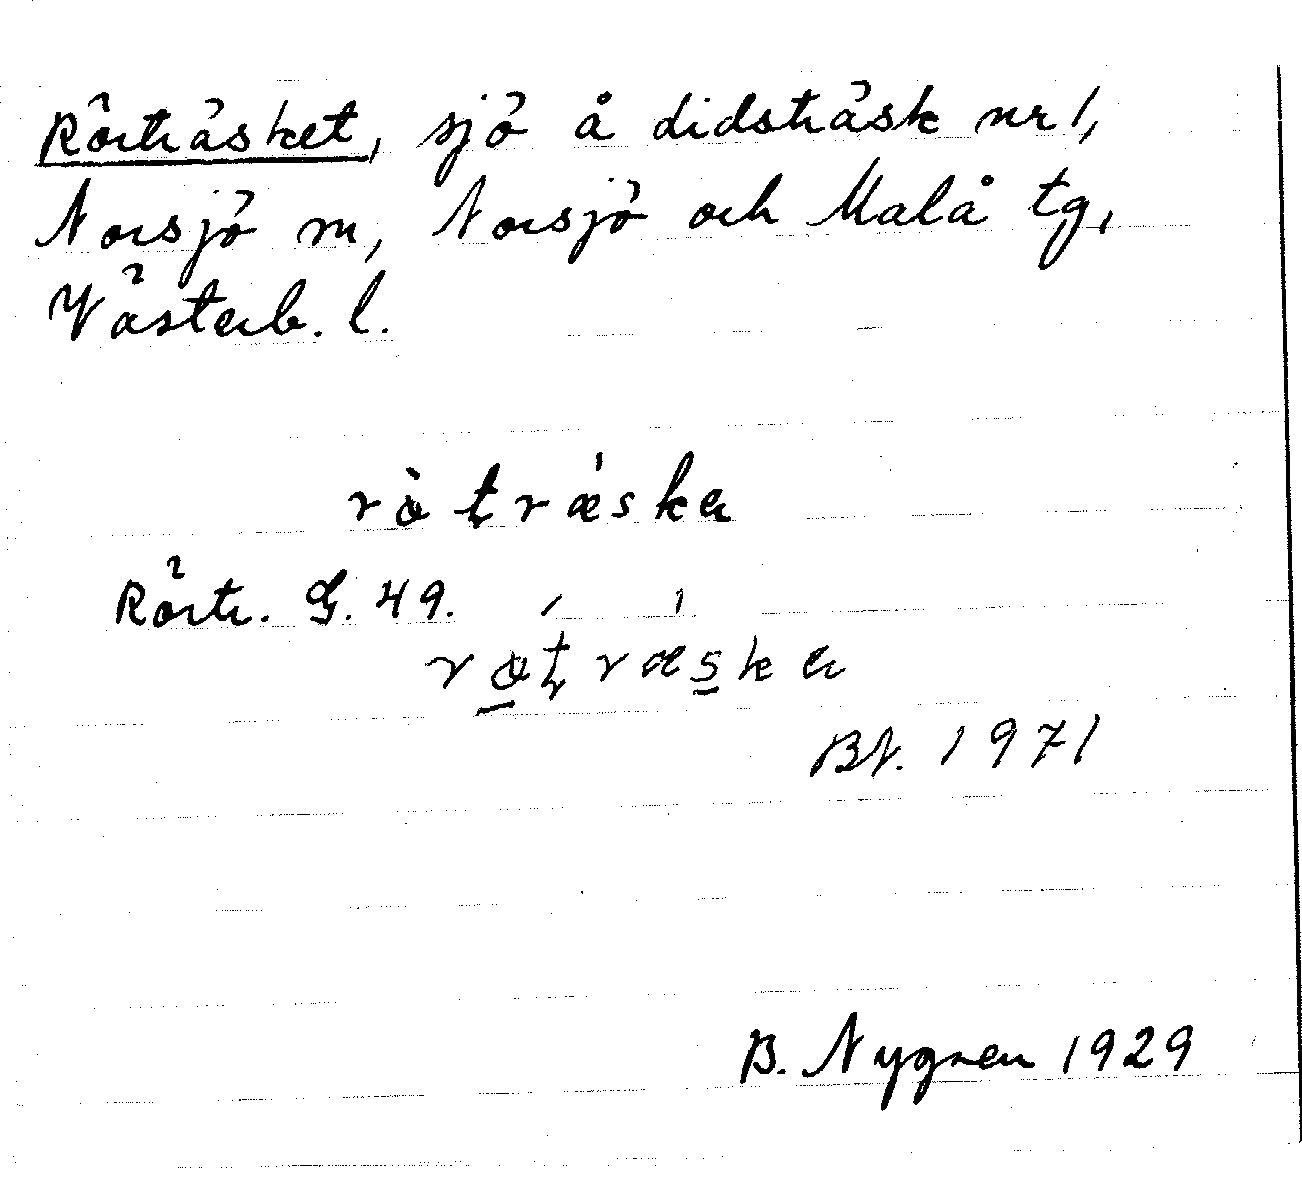 Rörträsket, sjö å Lidsträsk nr 1,
Norsjö m, Norsjö och Malå tg,
Västerb. l.
rò̀ʈrǽska
Rörtr. G. 49.
rɵ̱ʈræs̱ka
BN. 1971
B. Nygren 1929